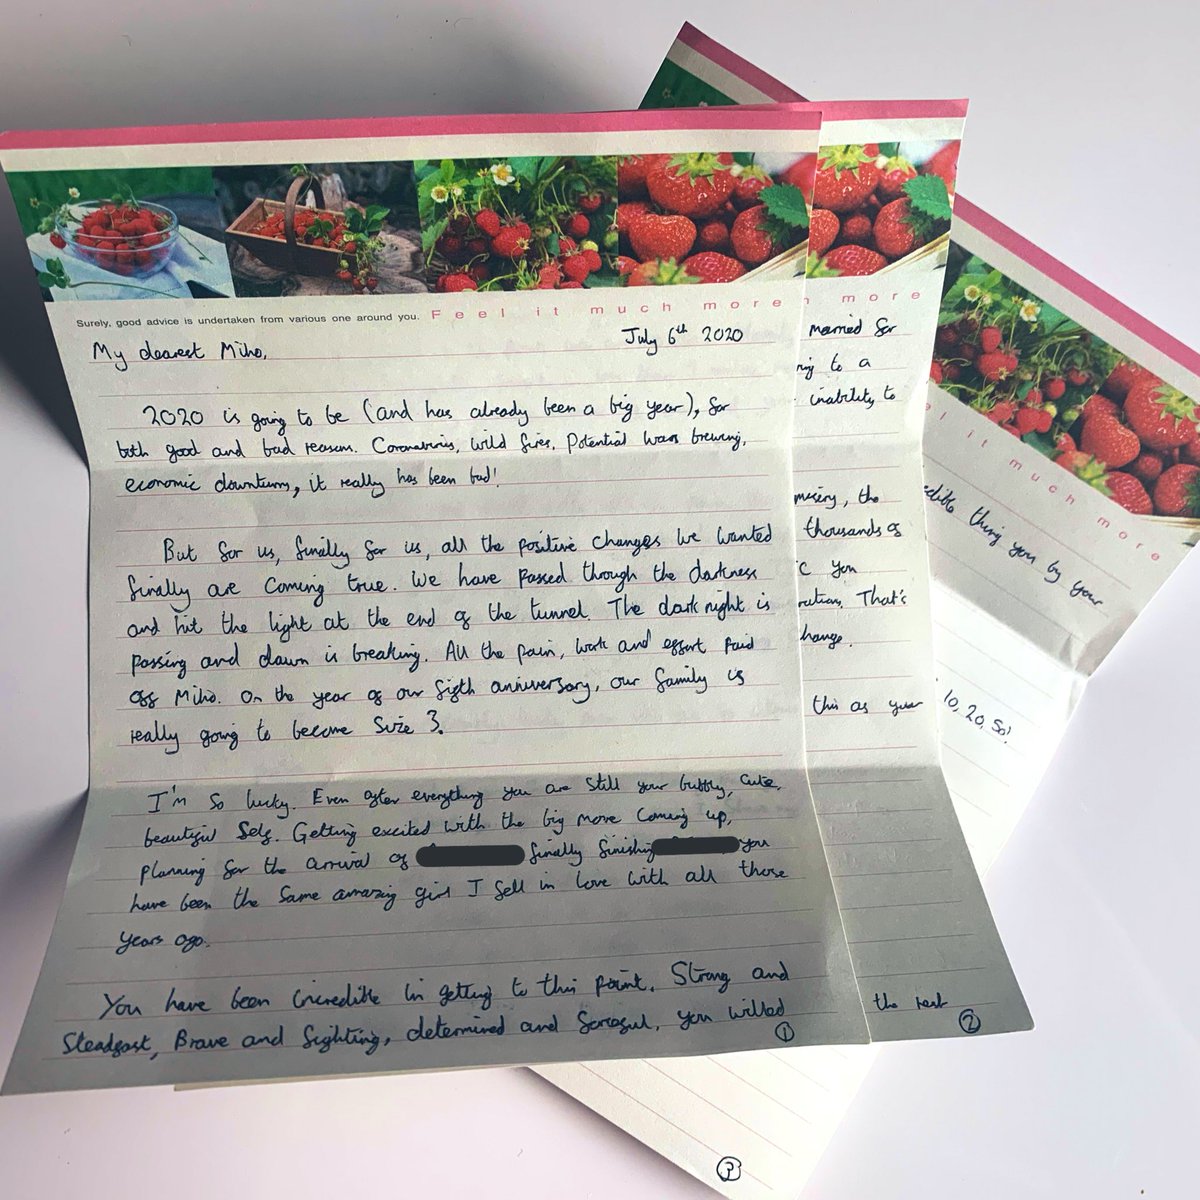 Surely, good advice is undertaken from various one around you. Feel it much more
My dearest Miho, July 6th 2020
2020 is going to be (and has already been a big year), for
both good and bad reasons. Coronavirus, wild fires, Potential wars brewing,
economic downturn, it really has been bad!
But for us, finally for us, all the positive changes we wanted
finally are coming true. We have passed through the darkness
and hit the light at the end of the tunnel. The dark night is
passing and dawn is breaking. All the pain, work and effort paid
off Miho. On the year of our fifth anniversary, our family is
really going to become size 3.
I'm so lucky. Even after everything you are still your bubbly, cute,
beautiful self. Getting excited with the big move coming up,
planning for the arrival of finally finishing you
have been the same amazing girl I fell in love with all those
years ago.
You have been incredible in getting to this point. Strong and
Steadfast, Brave and fighting, determined and forceful, you willed
1
more
married for
to a
inability to
misery, the
thousands of
you
That's
this as your
the rest
2
it much more
thing you by your
10, 20, 50!
3